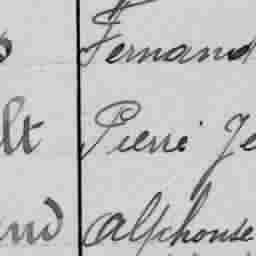 Fernand
lt Pierre Je
and Alphonse